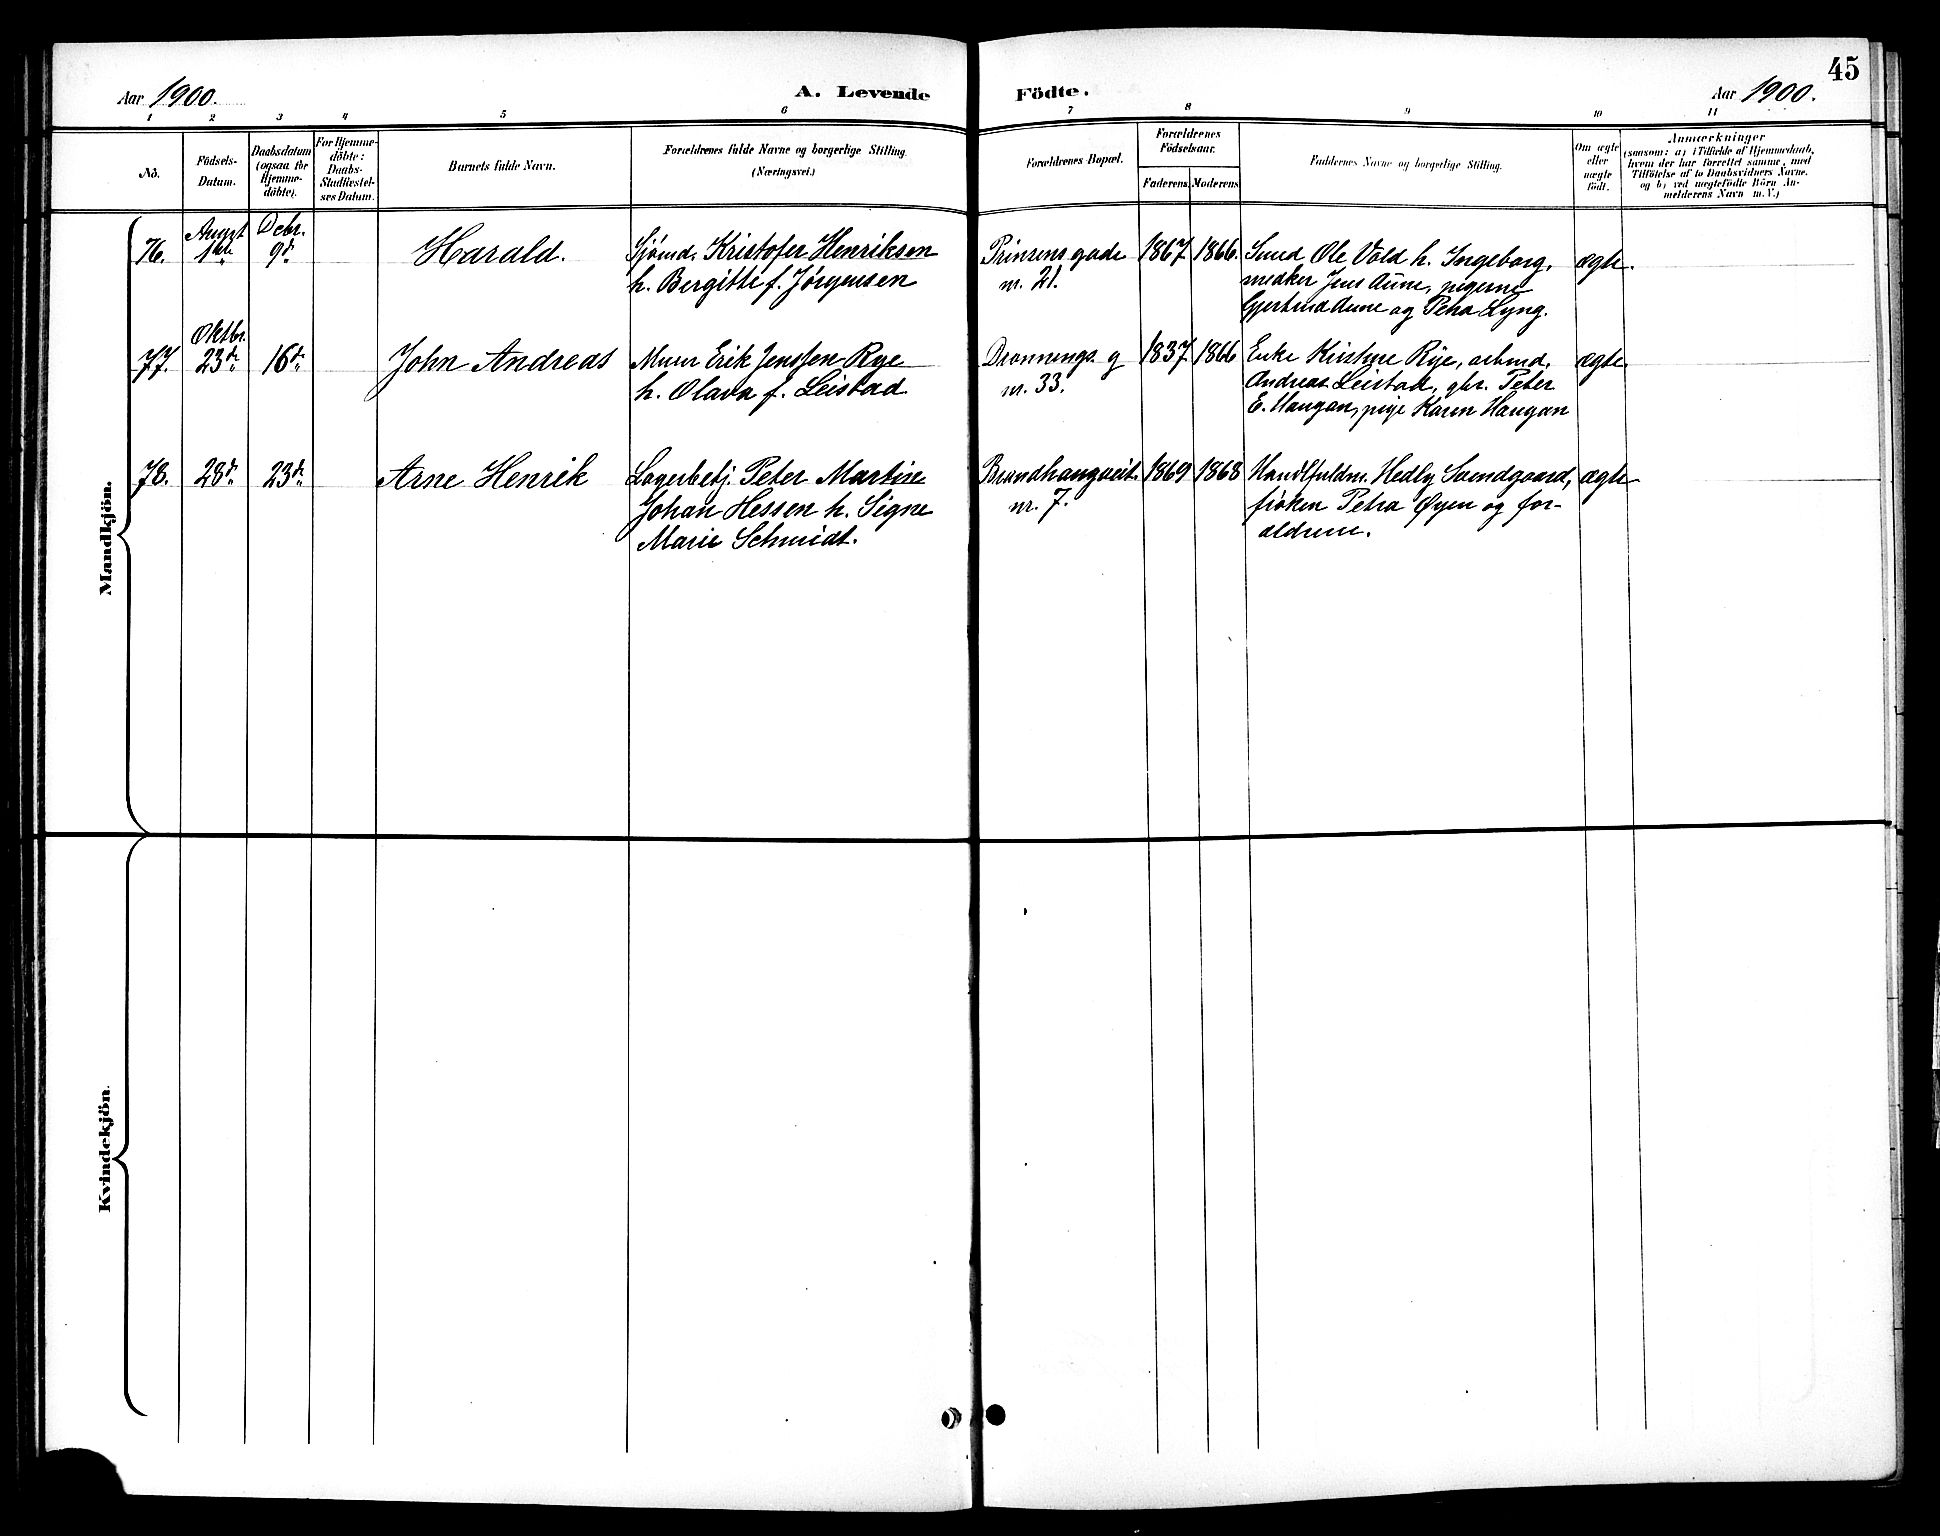 Aar 1900.
A. Levende
Födte.
Aar 1900.
45
1 2 3 4 5 6 7 8 9 10 11
No.
Födsels-
Datum.
Daabsdatum
(ogsaa for
Hjemme-
döbte).
For Hjemme-
döbte:
Daabs-
Stadfæstel-
ses Datum.
Barnets fulde Navn.
Forældrenes fulde Navne og borgerlige Stilling.
(Næringsvei.)
Forældrenes Bopæl.
Forældrenes
Födselsaar.
Faderens.
Moderens.
Faddernes Navne og borgerlige Stilling.
Om ægte
eller
uægte
födt.
Anmærkninger
(saasom: a) i Tilfælde af Hjemmedaab,
hvem der har forrettet samme, med
Tilföielse af to Daabsvidners Navne.
og b) ved uægtefödte Börn An-
melderens Navn m. V.)
Mandkjön.
76.
August
1ste
Debr.
9de
Harald.
Sjømd. Kristofer Henriksen
h. Bergitte f. Jørgensen
Prinsens gade
nr. 21.
1867
1866.
Smed Ole Vold h. Ingeborg,
Jens Aune, pigerne
Aune og Petra Lyng.
ægte.
77.
Oktbr.
23de
16de
John Andreas
Murer Erik Jenssen Rye
h. Olava f. Leistad
Dronnings. g
nr. 33.
1837
1866
Enke Kirstine Rye, arbmd.
Andreas Leistad, gbr. Peter
E. Haugan, pige Karen Haugan
ægte.
78.
28de
23de
Arne Henrik
Lagerbetj. Peter Martin
Johan Hessen h. Signe
Marie Schmidt.
Brandhaugveit.
nr. 7.
1869
1868
Handlfuldm. Hedly Svendgaard,
frøken Petra Øyen og for-
ældrene.
ægte
Kvindekjön.